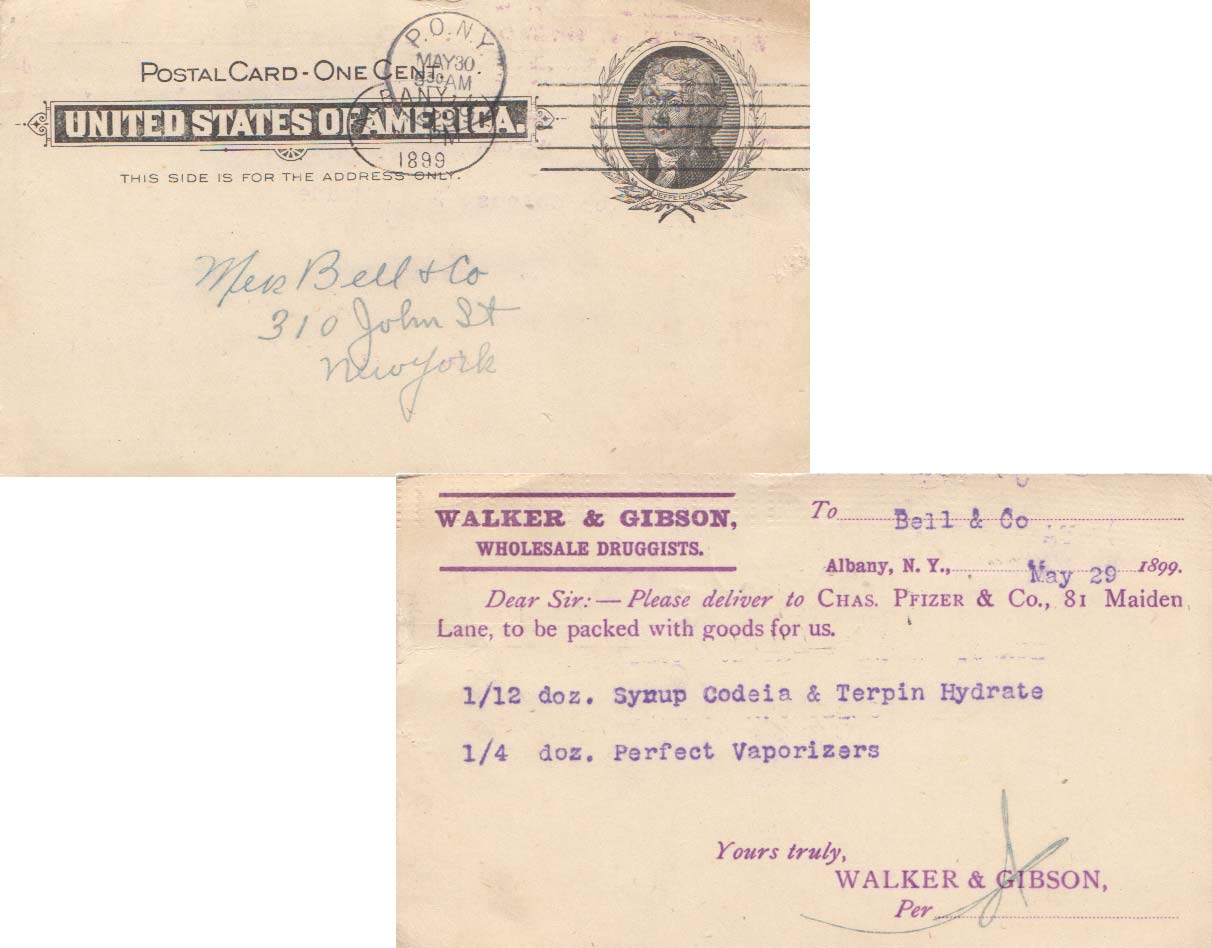 P.O.N.Y.
MAY 30
830 AM
POSTAL CARD - ONE CENT.
UNITED STATES OF AMERICA.
1899
THIS SIDE IS FOR THE ADDRESS ONLY.
JEFFERSON
Mess Bell & Co
310 John St
New York
WALKER & GIBSON,
WHOLESALE DRUGGISTS.
To Bell & Co
Albany, N. Y., May 29 1899.
Dear Sir:— Please deliver to CHAS. PFIZER & Co., 81 Maiden
Lane, to be packed with goods for us.
1/12 doz. Synup Codeia & Terpin Hydrate
1/4 doz. Perfect Vaporizers
Yours truly,
WALKER & GIBSON,
Per